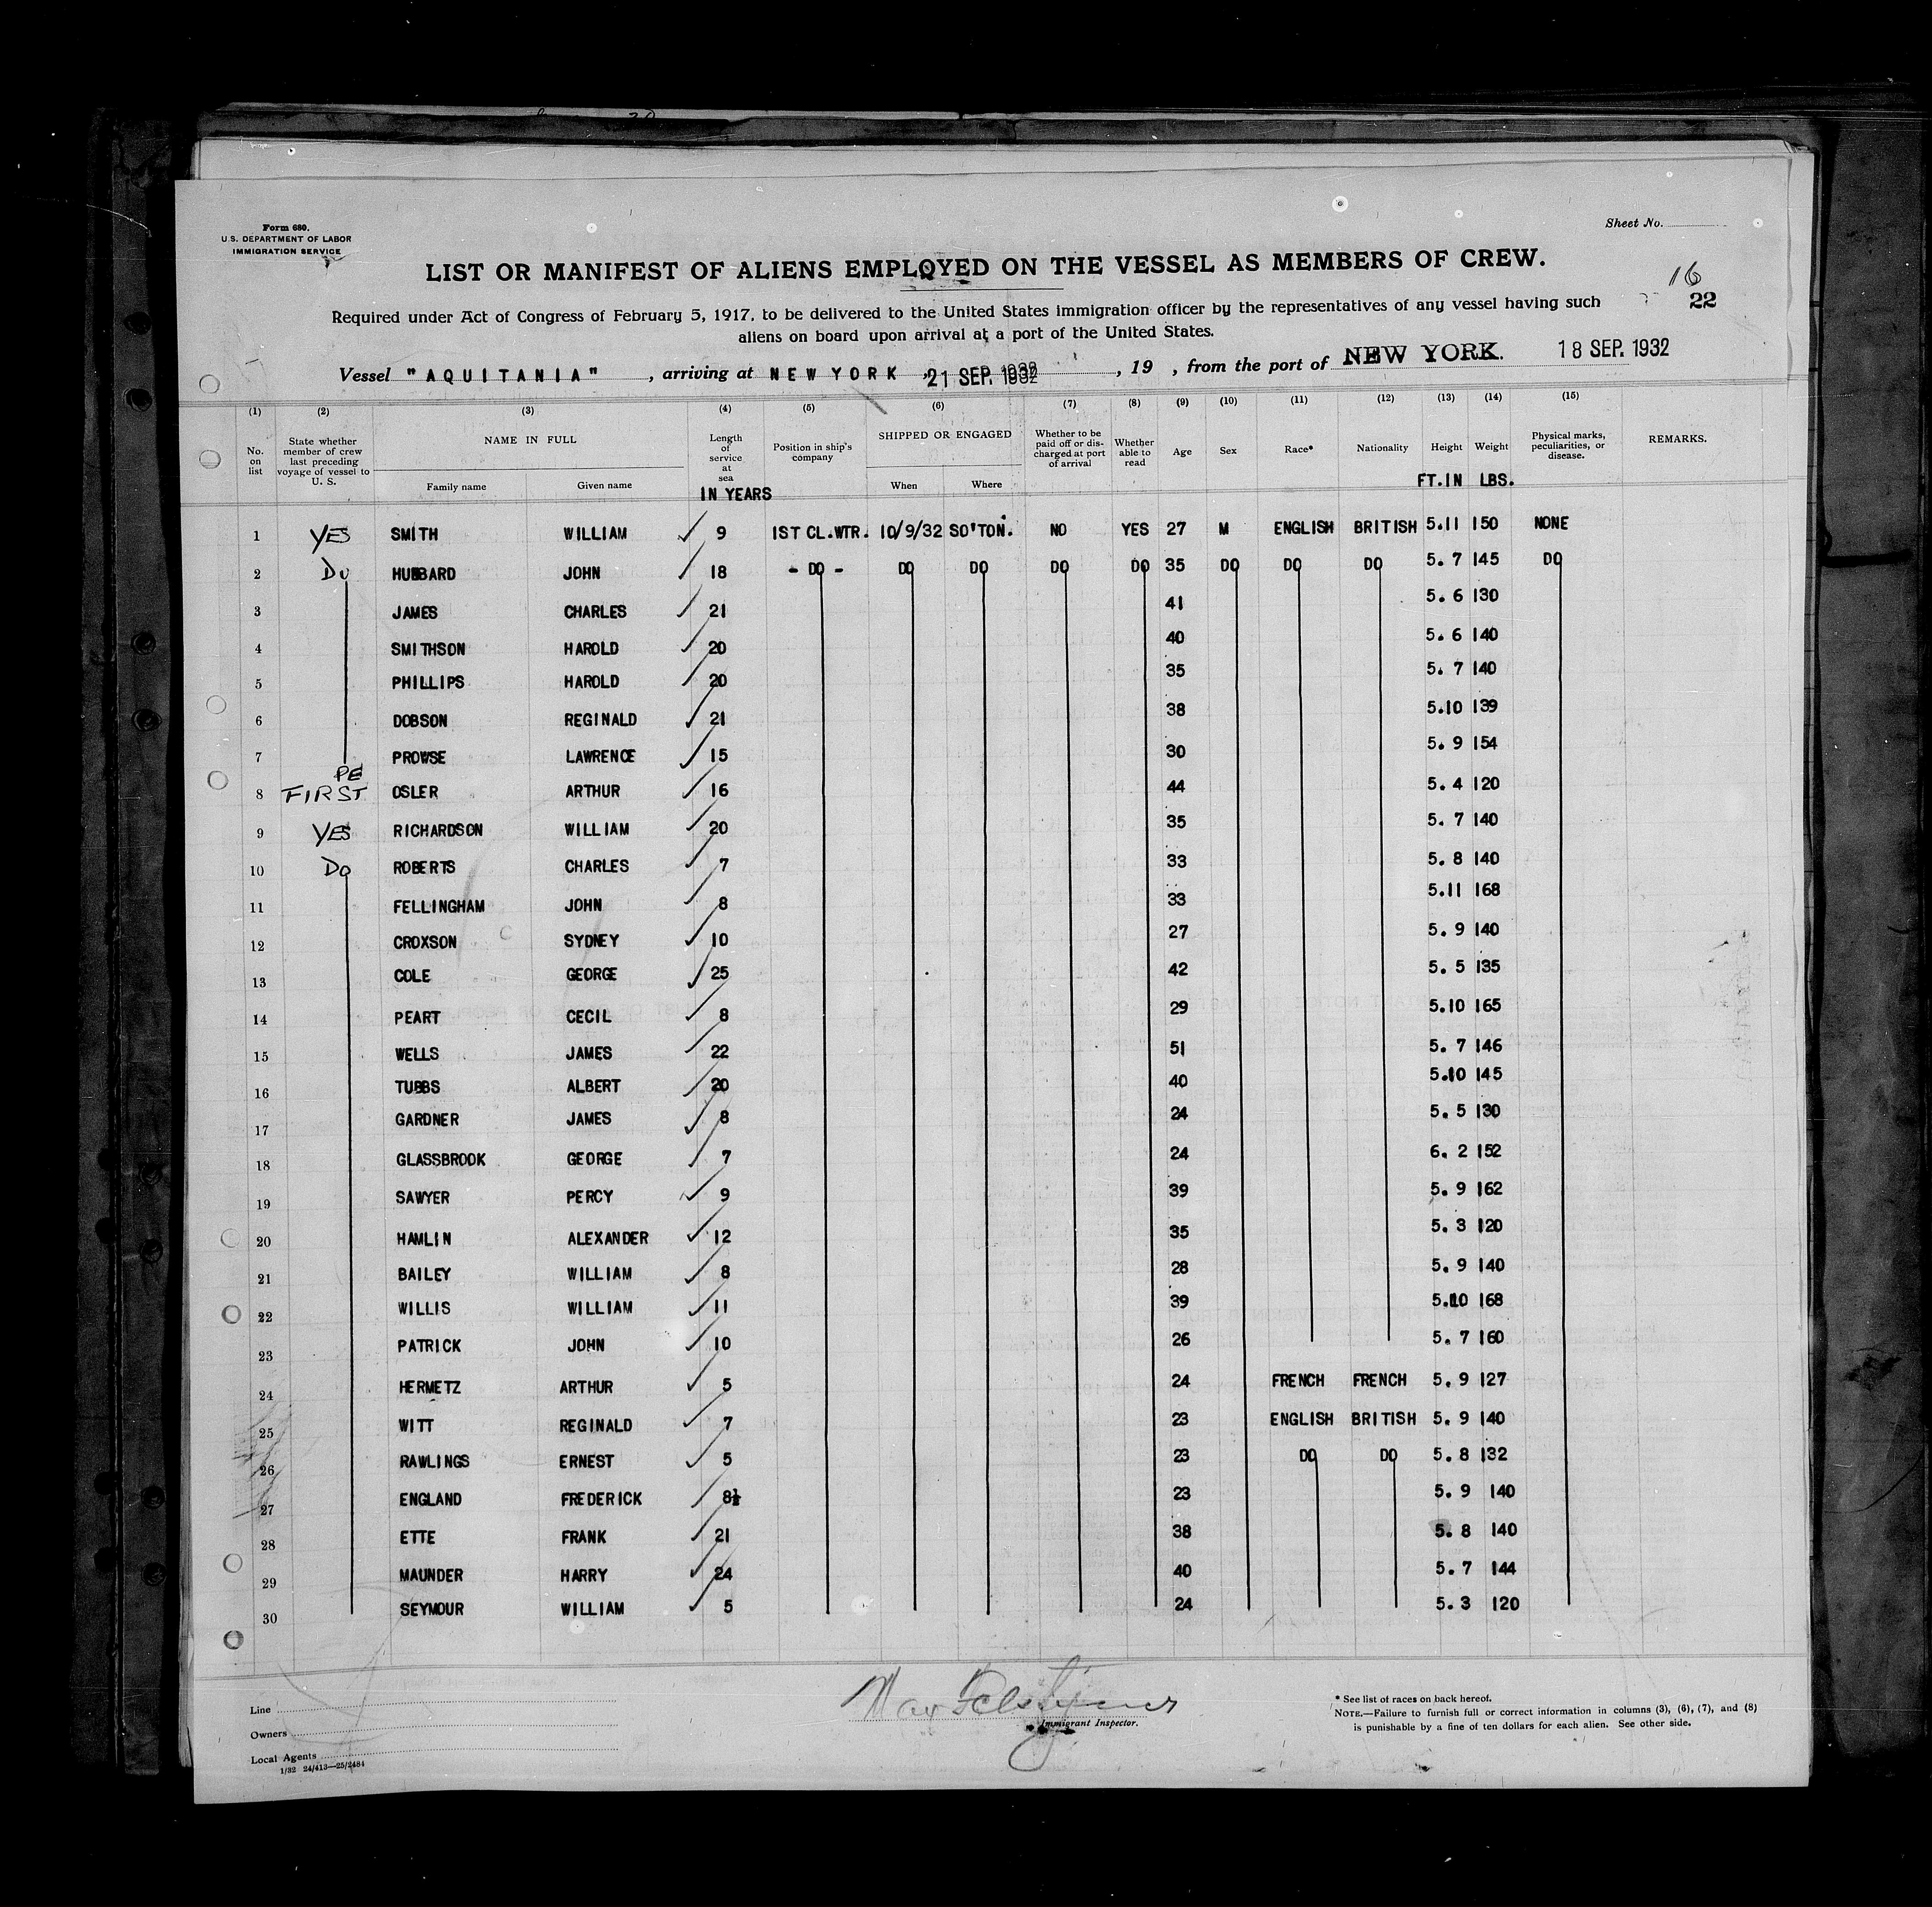 Form 680.
U.S. DEPARTMENT OF LABOR
IMMIGRATION SERVICE
Sheet No.
LIST OR MANIFEST OF ALIENS EMPLOYED ON THE VESSEL AS MEMBERS OF CREW.
16
22
Required under Act of Congress of February 5, 1917, to be delivered to the United States immigration officer by the representatives of any vessel having such
aliens on board upon arrival at a port of the United States.
Vessel "AQUITANIA", arriving at NEW YORK, 21 SEP. 1932, 19 , from the port of NEW YORK. 18 SEP. 1932
(1) (2) (3) (4) (5) (6) (7) (8) (9) (10) (11) (12) (13) (14) (15)
No. on list State whether member of crew last preceding voyage of vessel to U. S. NAME IN FULL Family name Given name Length of service at sea IN YEARS Position in ship's company SHIPPED OR ENGAGED When Where Whether to be paid off or discharged at port of arrival Whether able to read Age Sex Race* Nationality Height FT.IN Weight LBS. Physical marks, peculiarities, or disease. REMARKS.
1 YES SMITH WILLIAM 9 1ST CL.WTR. 10/9/32 SO'TON. NO YES 27 M ENGLISH BRITISH 5.11 150 NONE
2 Do HUBBARD JOHN 18 - DO - DO DO DO DO 35 DO DO DO 5. 7 145 DO
3 JAMES CHARLES 21 41 5. 6 130
4 SMITHSON HAROLD 20 40 5. 6 140
5 PHILLIPS HAROLD 20 35 5. 7 140
6 DOBSON REGINALD 21 38 5.10 139
7 PROWSE LAWRENCE 15 30 5. 9 154
PE
8 FIRST OSLER ARTHUR 16 44 5. 4 120
9 YES RICHARDSON WILLIAM 20 35 5. 7 140
10 Do ROBERTS CHARLES 7 33 5. 8 140
11 FELLINGHAM JOHN 8 33 5.11 168
12 CROXSON SYDNEY 10 27 5. 9 140
13 COLE GEORGE 25 42 5. 5 135
14 PEART CECIL 8 29 5.10 165
15 WELLS JAMES 22 51 5. 7 146
16 TUBBS ALBERT 20 40 5.10 145
17 GARDNER JAMES 8 24 5. 5 130
18 GLASSBROOK GEORGE 7 24 6. 2 152
19 SAWYER PERCY 9 39 5. 9 162
20 HAMLIN ALEXANDER 12 35 5. 3 120
21 BAILEY WILLIAM 8 28 5. 9 140
22 WILLIS WILLIAM 11 39 5.10 168
23 PATRICK JOHN 10 26 5. 7 160
24 HERMETZ ARTHUR 5 24 FRENCH FRENCH 5. 9 127
25 WITT REGINALD 7 23 ENGLISH BRITISH 5. 9 140
26 RAWLINGS ERNEST 5 23 DO DO 5. 8 132
27 ENGLAND FREDERICK 8½ 23 5. 9 140
28 ETTE FRANK 21 38 5. 8 140
29 MAUNDER HARRY 24 40 5. 7 144
30 SEYMOUR WILLIAM 5 24 5. 3 120
Line
Owners
Local Agents
1/32 24/413—25/2484
Max
Immigrant Inspector.
* See list of races on back hereof.
NOTE.—Failure to furnish full or correct information in columns (3), (6), (7), and (8)
is punishable by a fine of ten dollars for each alien. See other side.